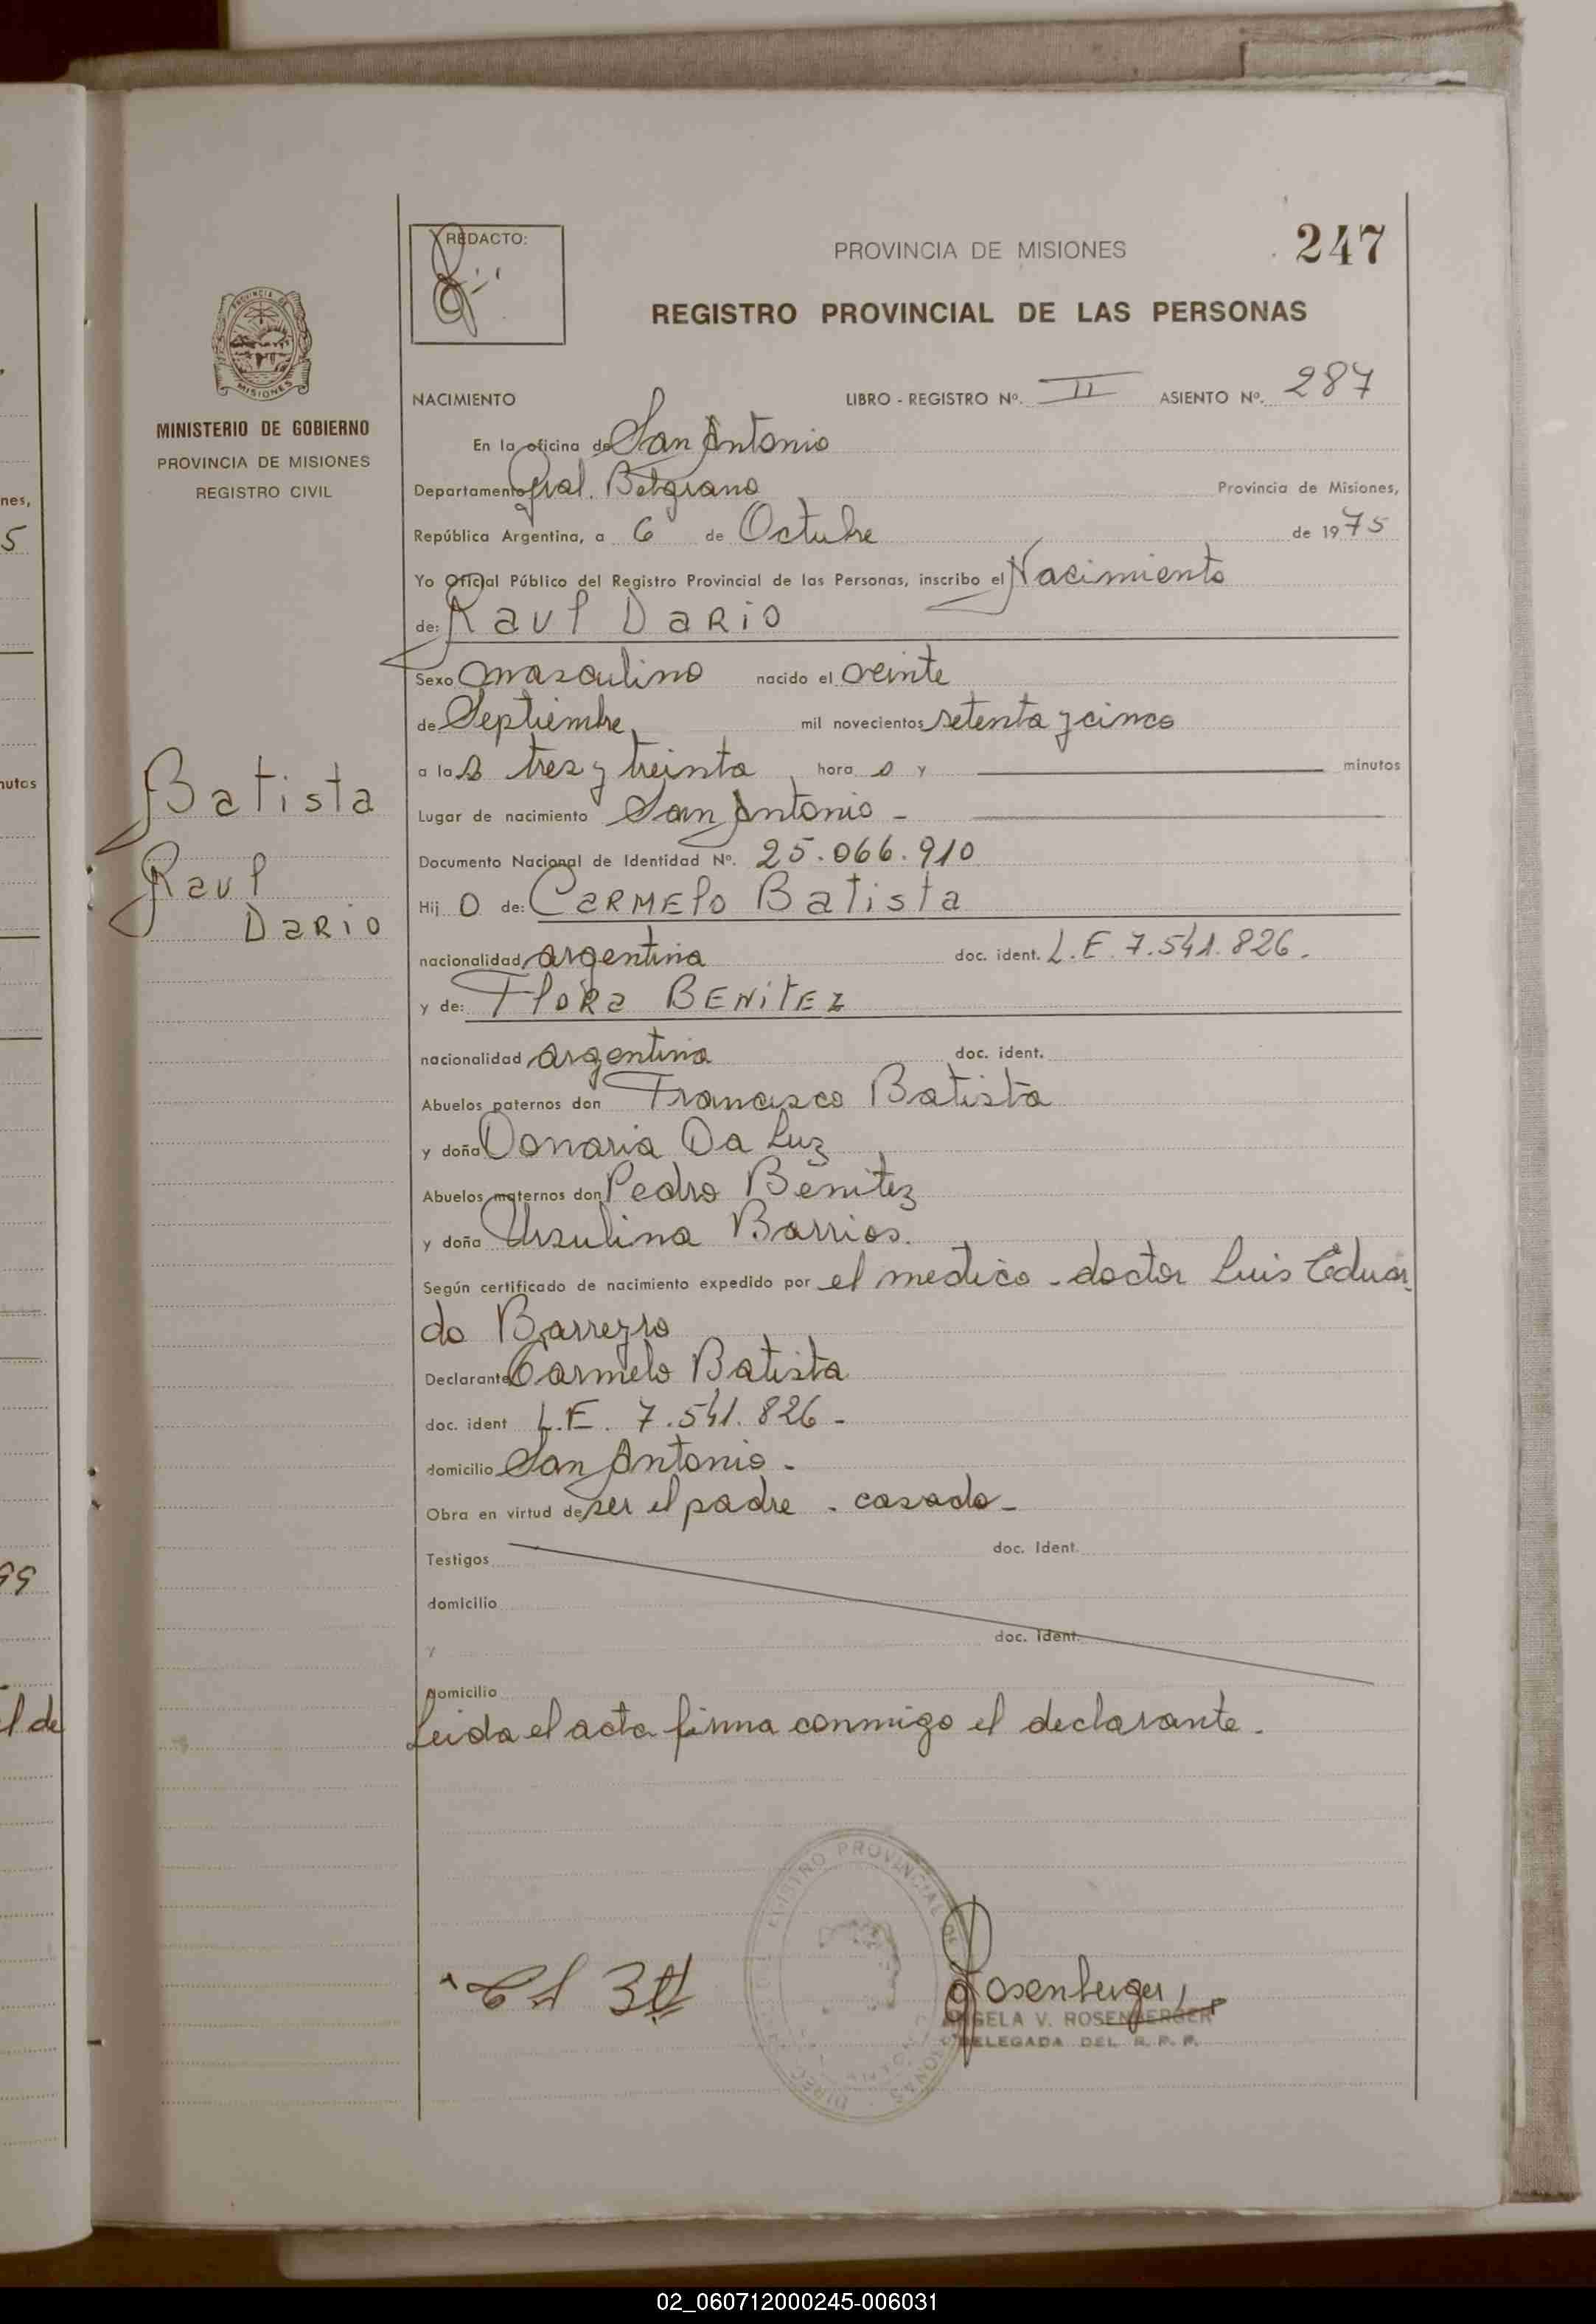 REDACTO:
PROVINCIA DE MISIONES
247
REGISTRO PROVINCIAL DE LAS PERSONAS
PROVINCIA DE
MISIONES
MINISTERIO DE GOBIERNO
PROVINCIA DE MISIONES
REGISTRO CIVIL
NACIMIENTO LIBRO - REGISTRO Nº. II ASIENTO Nº. 287
En la oficina de San Antonio
Departamento Gral. Belgrano Provincia de Misiones,
República Argentina, a 6 de Octubre de 1975
Yo Oficial Público del Registro Provincial de las Personas, inscribo el Nacimiento
de: Raul Dario
Sexo masculino nacido el veinte
de Septiembre mil novecientos setenta y cinco
a las tres y treinta hora s y minutos
Lugar de nacimiento San Antonio -
Documento Nacional de Identidad Nº. 25.066.910
Hij o de: Carmelo Batista
nacionalidad argentina doc. ident. L.E. 7.541.826.
y de: Flora Benitez
nacionalidad argentina doc. ident.
Abuelos paternos don Francisco Batista
y doña Donaria Da Luz
Abuelos maternos don Pedro Benitez
y doña Ursulina Barrios.
Según certificado de nacimiento expedido por el medico - doctor Luis Eduar
do Barreyro
Declarante Carmelo Batista
doc. ident L.E. 7.541.826 -
domicilio San Antonio -
Obra en virtud de ser el padre - casado -
Testigos doc. Ident.
domicilio
y doc. Ident.
domicilio
Leida el acta firma conmigo el declarante.
Batista
Raul
Dario
Rosenberger
ANGELA V. ROSENBERGER
DELEGADA DEL R. P. P.
nes,
5
nutos
99
l de
02_060712000245-006031